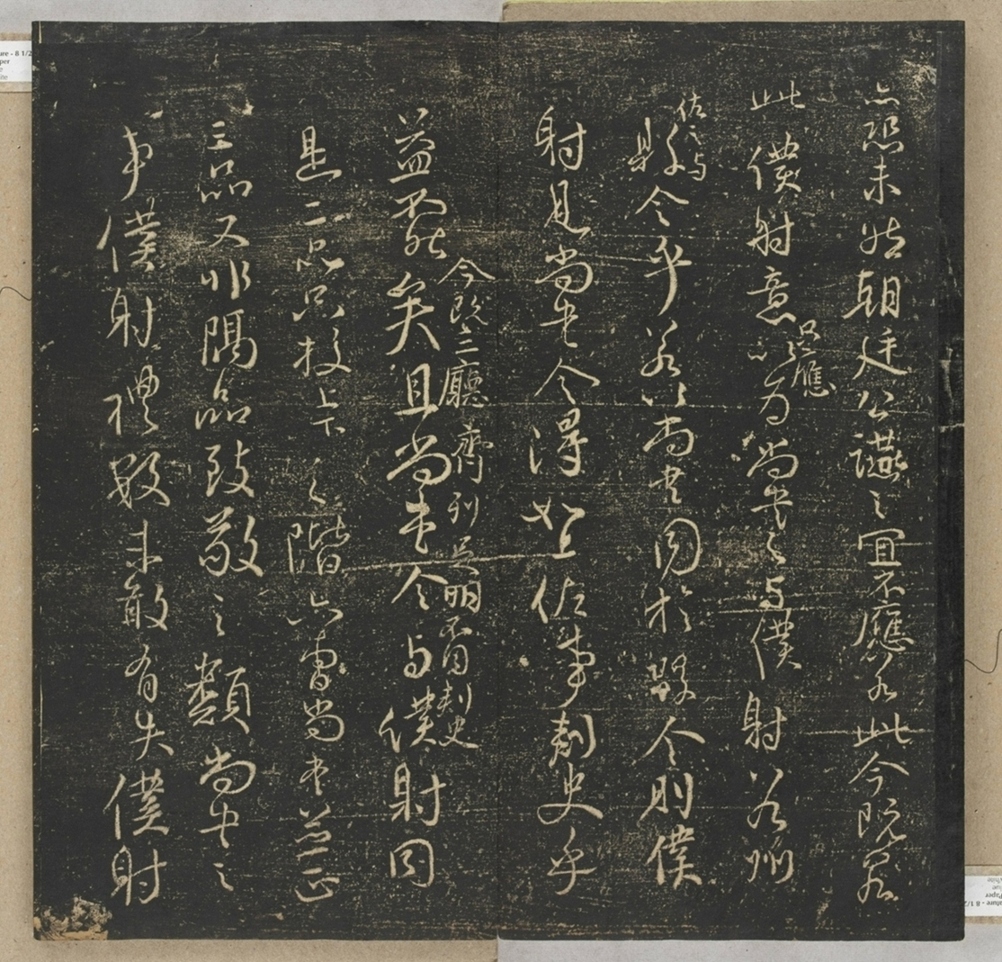 亦恐未姑朝廷公讌之宜不應若此今既若
此僕射意只應以為尚書之與僕射若州
佐之與縣令乎若以尚書同於縣令則僕
射見尚書令得如上佐事刺史乎
今既三廳齊列足明不同刺史
益不然矣且尚書令與僕射同
是二品只校上下之階六曹尚書並正
三品又非隔品致敬之類尚書之
事僕射禮數未敢有失僕射